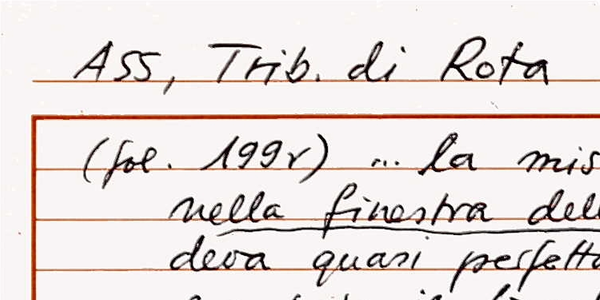 ASS, Trib. di Rota
(fol. 199r) ... la mis
nella finestra dell
deva quasi perfetta